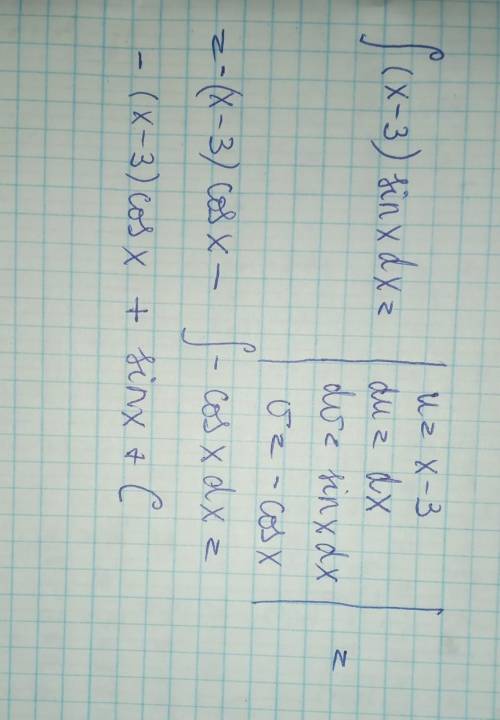 ∫ (x-3) sin x dx = | u = x-3
du = dx
dv = sin x dx
v = - cos x | =
= - (x-3) cos x - ∫ - cos x dx =
- (x-3) cos x + sin x + C